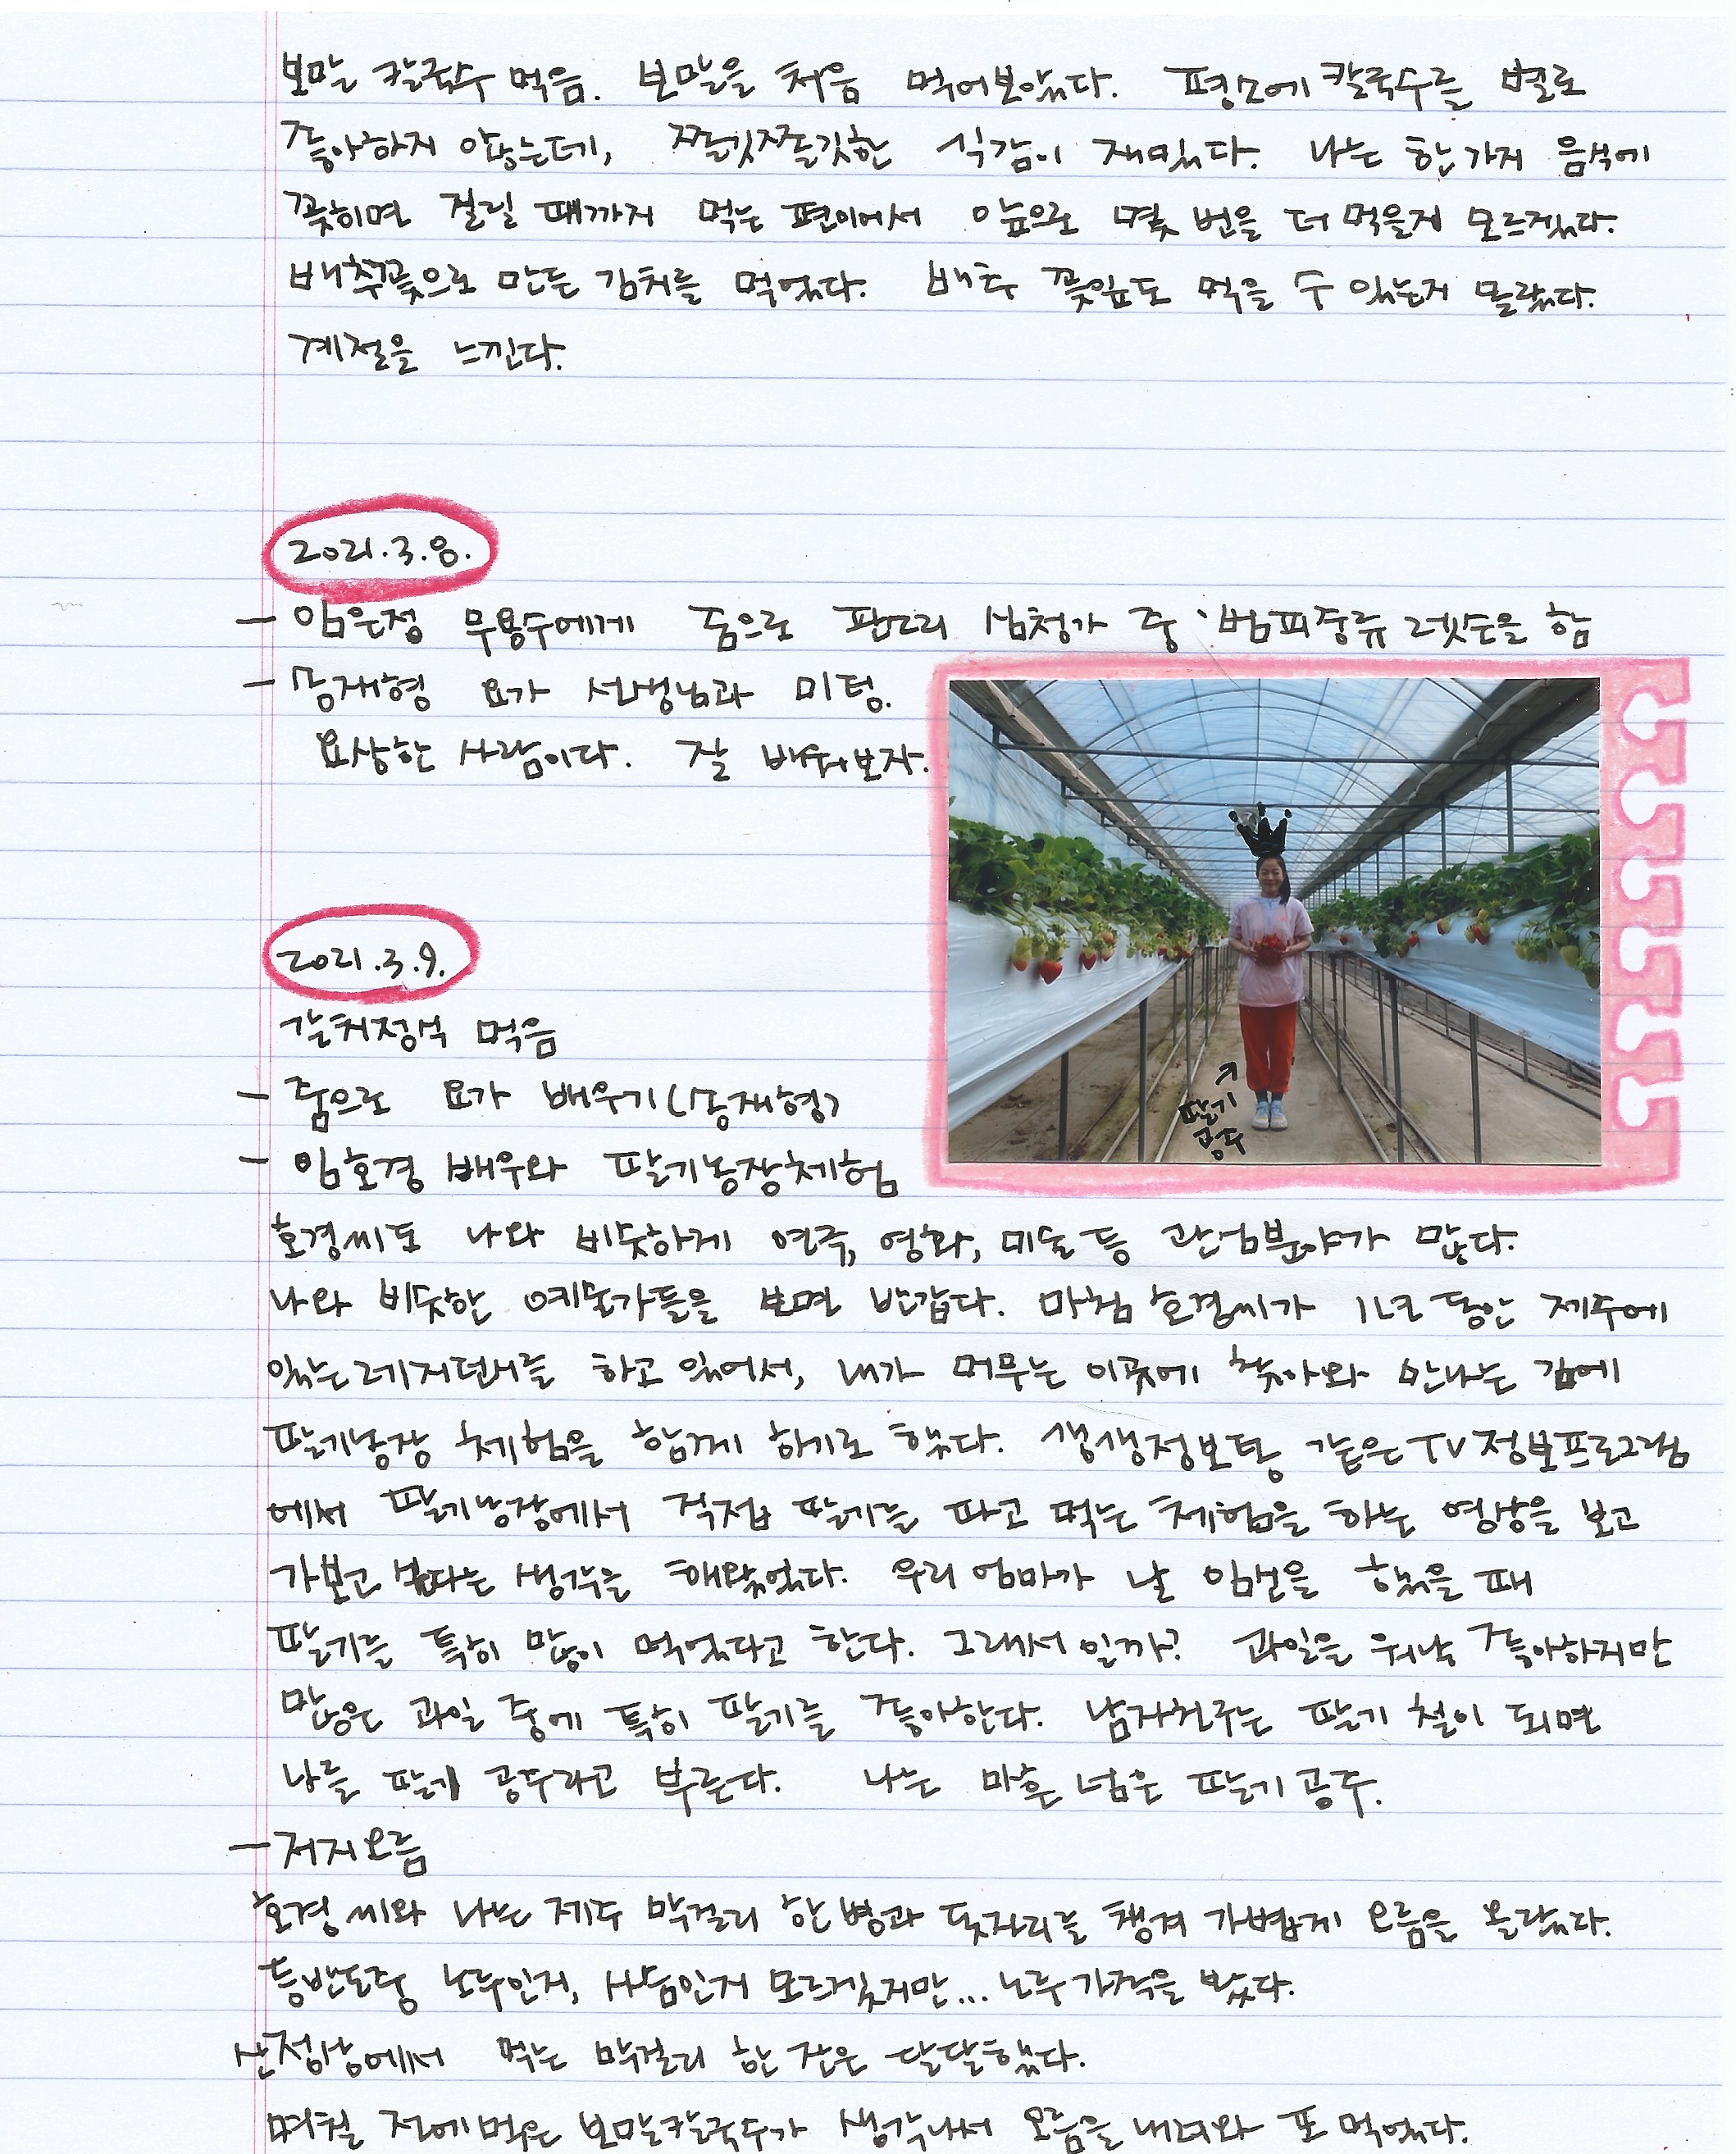 보말 칼국수 먹음. 보말을 처음 먹어보았다. 평소에 칼국수를 별로
좋아하지 않는데, 쫄깃쫄깃한 식감이 재밌다. 나는 한가지 음식에
꽂히면 질릴 때까지 먹는 편이어서 앞으로 몇 번을 더 먹을지 모르겠다.
배추꽃으로 만든 김치를 먹었다. 배추 꽃잎도 먹을 수 있는지 몰랐다.
계절을 느낀다.
2021.3.8.
- 임은정 무용수에게 줌으로 판소리 심청가 중 '범피중류 레슨을 함
- 송재형 요가 선생님과 미팅.
요상한 사람이다. 잘 배워보자.
2021.3.9.
갈치정식 먹음
- 줌으로 요가 배우기(송재형)
- 임호경 배우와 딸기농장체험
딸기
공주
호경씨도 나와 비슷하게 연극, 영화, 미술 등 관심분야가 많다.
나와 비슷한 예술가들을 보면 반갑다. 마침 호경씨가 1년 동안 제주에
있는 레지던시를 하고 있어서, 내가 머무는 이곳에 찾아와 만나는 김에
딸기농장 체험을 함께 하기로 했다. 생생정보통 같은 TV정보프로그램
에서 딸기농장에서 직접 딸기를 따고 먹는 체험을 하는 영상을 보고
가보고 싶다는 생각을 해왔었다. 우리 엄마가 날 임신을 했을 때
딸기를 특히 많이 먹었다고 한다. 그래서 일까? 과일을 워낙 좋아하지만
많은 과일 중에 특히 딸기를 좋아한다. 남자친구는 딸기 철이 되면
나를 딸기 공주라고 부른다. 나는 마흔 넘은 딸기 공주.
- 저지오름
호경 씨와 나는 제주 막걸리 한병과 돗자리를 챙겨 가볍게 오름을 올랐다.
등반도중 노루인지, 사슴인지 모르겠지만... 노루가족을 봤다.
산정상에서 먹는 막걸리 한 잔은 달달했다.
며칠 전에 먹은 보말칼국수가 생각나서 오름을 내려와 또 먹었다.